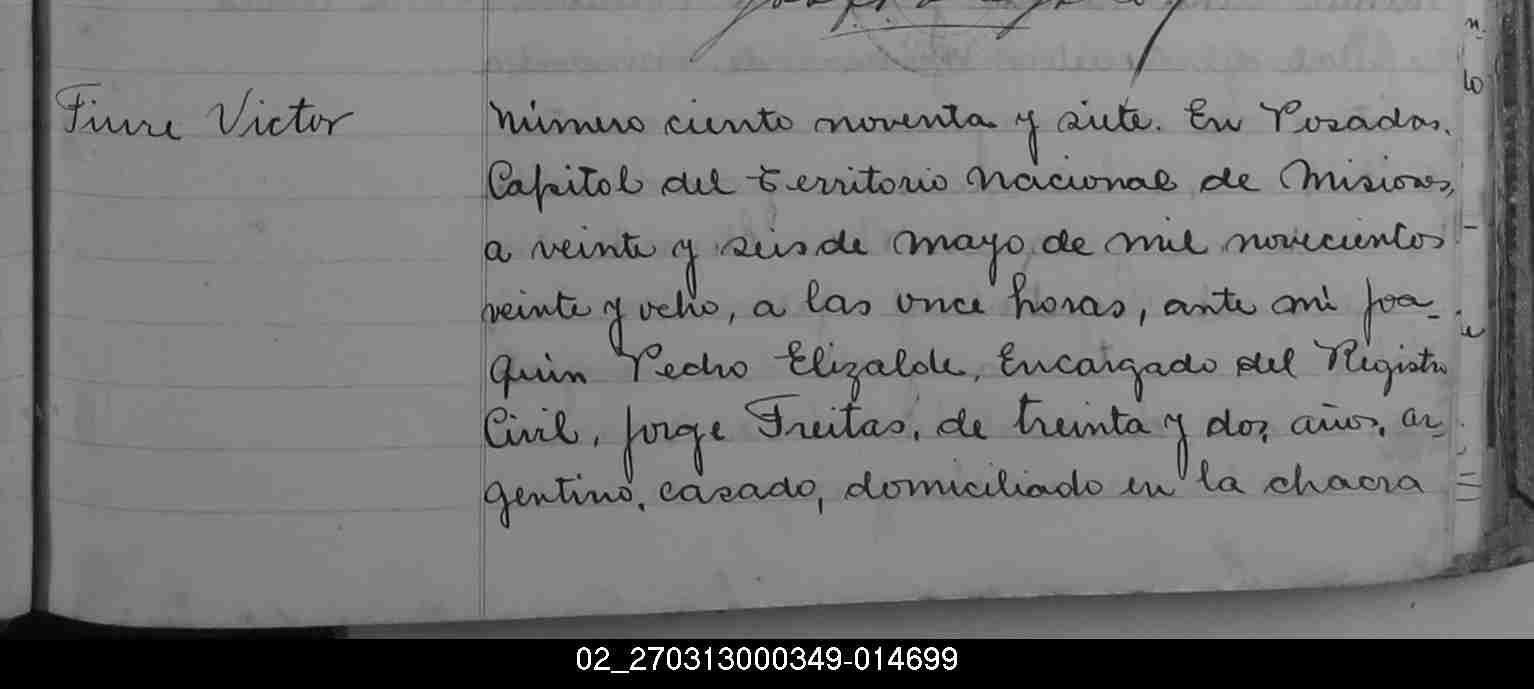 Fiure Victor
Número ciento noventa y siete. En Posadas,
Capital del territorio Nacional de Misiones,
a veinte y seis de mayo de mil novecientos
veinte y ocho, a las once horas, ante mi Joa-
quin Pedro Elizalde, Encargado del Registro
Civil, Jorge Freitas, de treinta y dos años, ar-
gentino, casado, domiciliado en la chacra
02_270313000349-014699